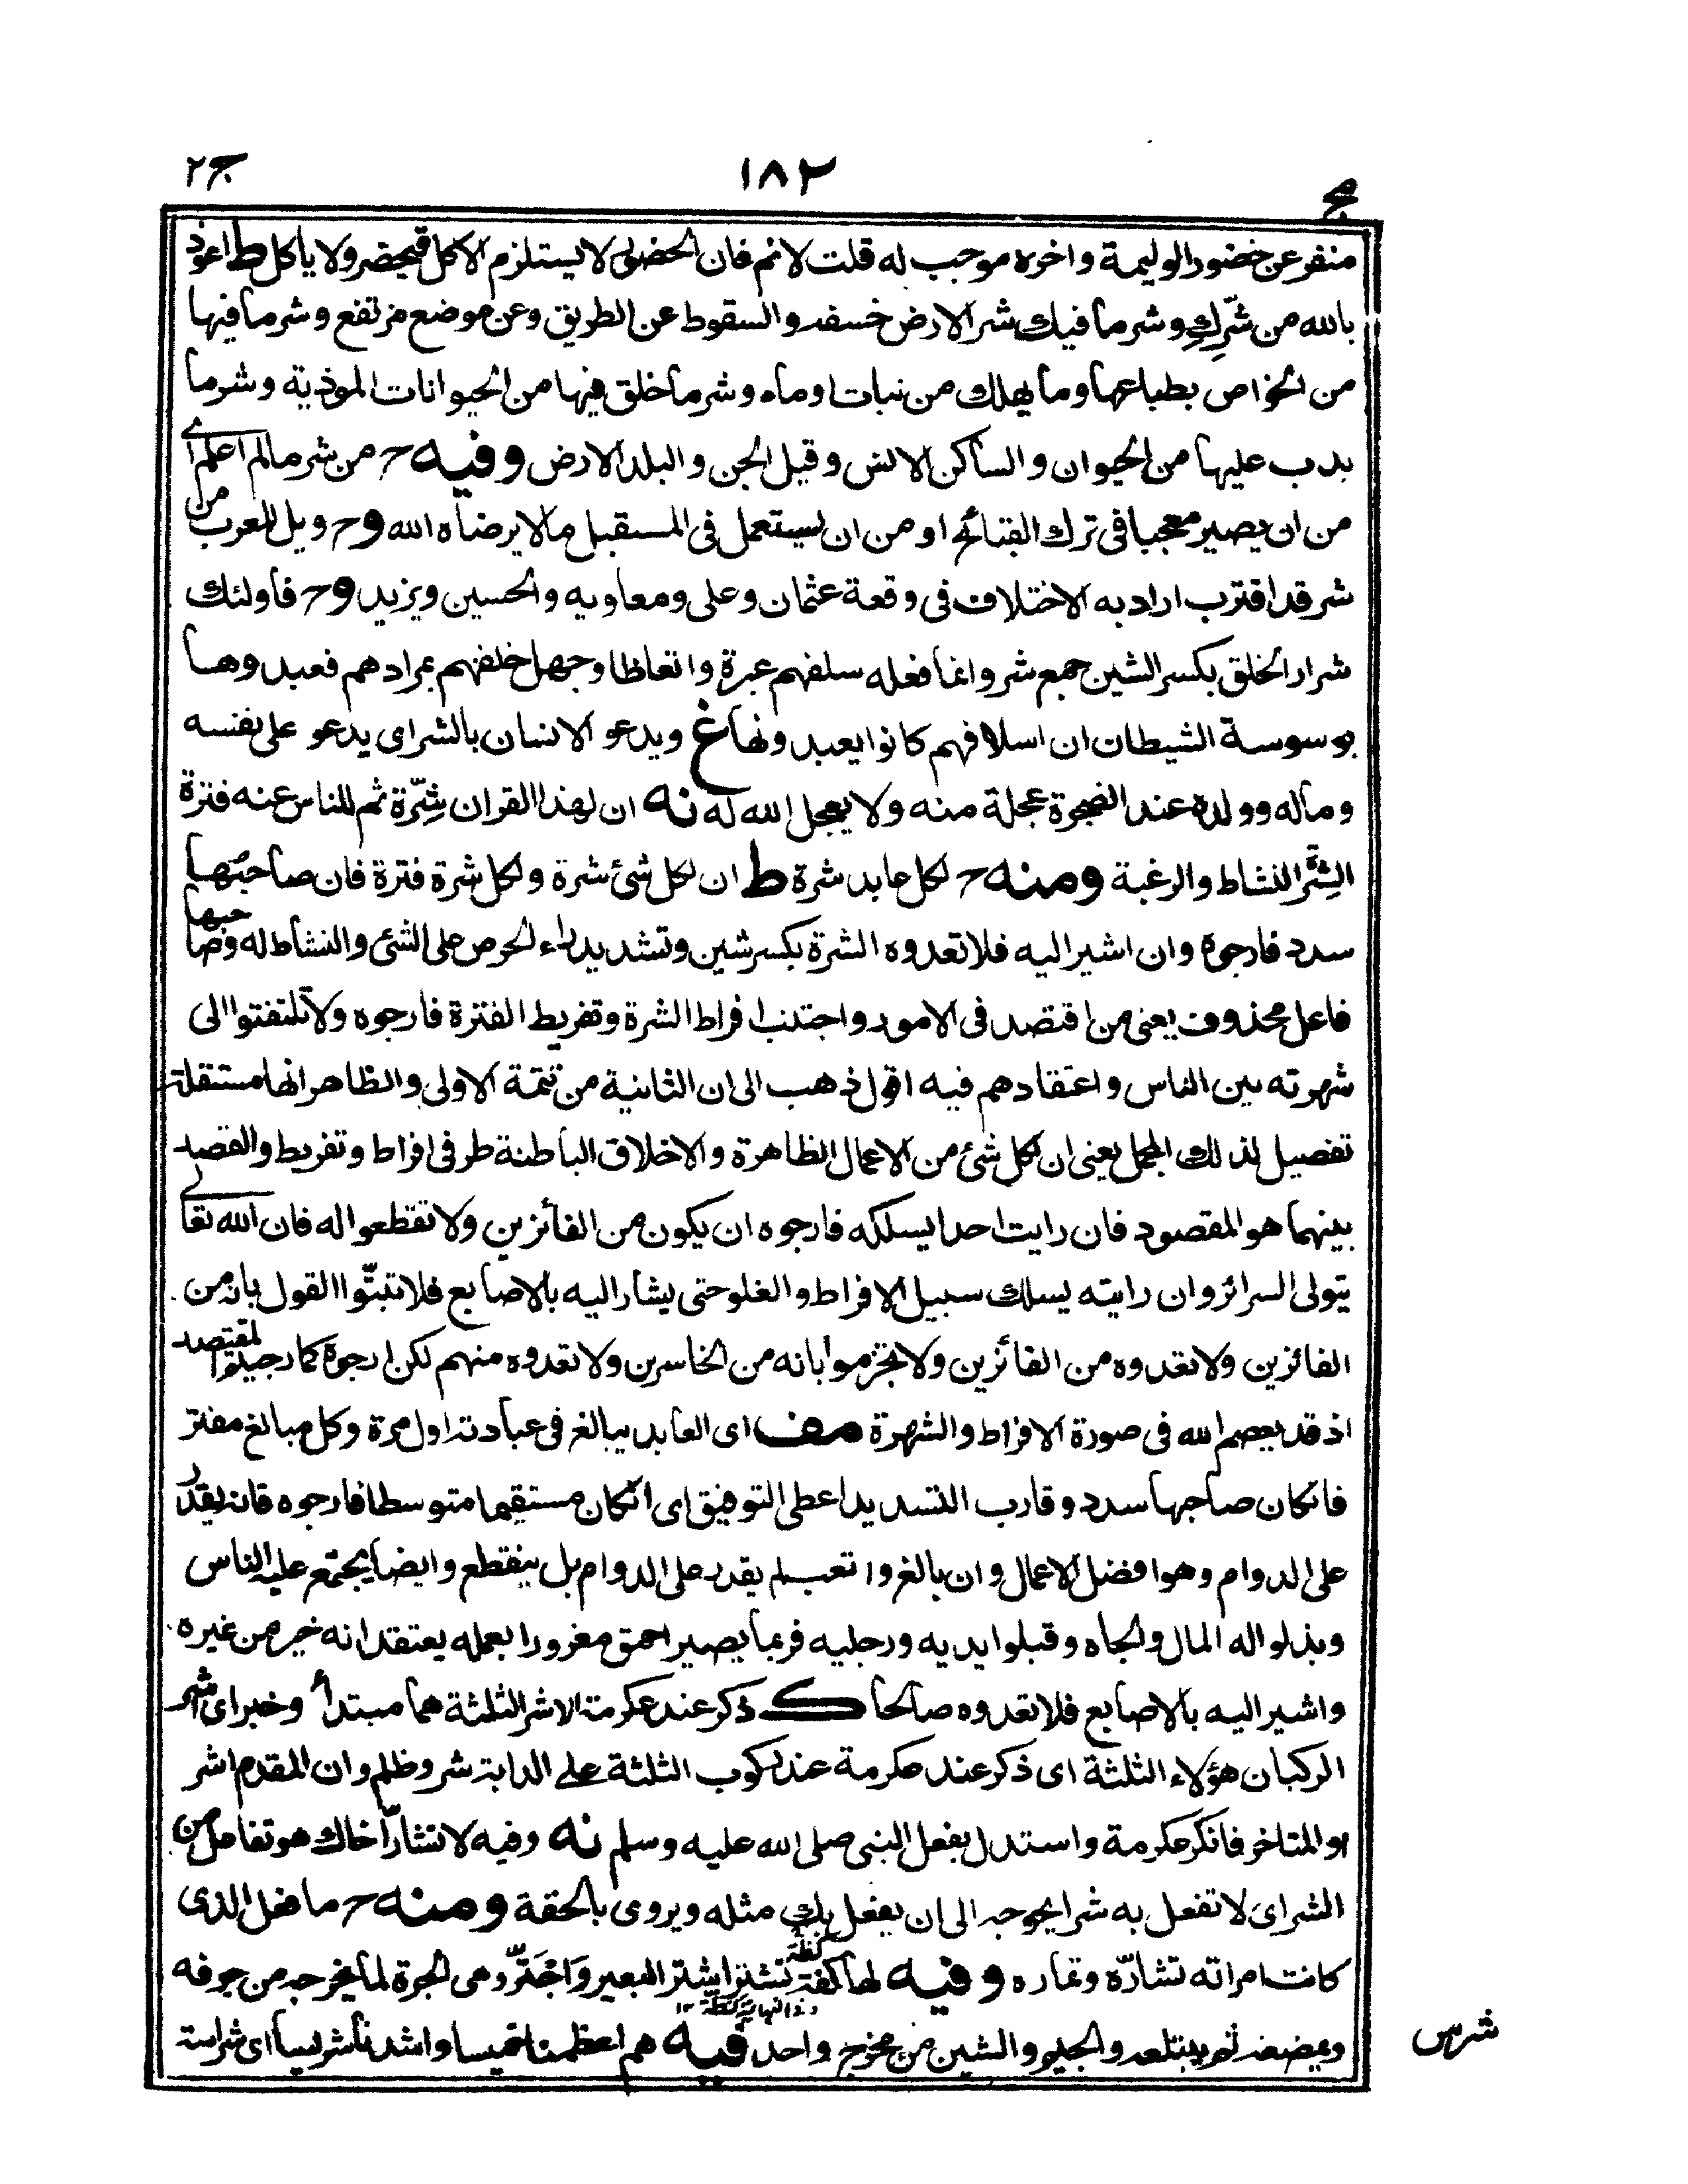 ج٢
١٨٢
مج
منفر عن حضور الوليمة واخره موجب له قلت لا نم فان الحضور لا يستلزم الاكل فيحضر ولا ياكل ط اعوذ
بالله من شرّكِ وشر ما فيك شر الارض خسفه والسقوط عن الطريق وعن موضع مرتفع وشر ما فيها
من الخواص بطباعها وما يهلك من نبات او ماء وشر ما خلق فيها من الحيوانات الموذية وشر ما
يدب عليها من الحيوان والساكن الانس وقيل الجن والبلد الارض وفيه ح من شر ما لم اعلم اى
من ان يصير معجبا فى ترك القبائح او من ان يستعمل فى المستقبل ما لا يرضاه الله و ح ويل للعرب من
شر قد اقترب اراد به الاختلاف فى وقعة عثمان وعلى ومعاويه والحسين ويزيد و ح فاولئك
شرار الخلق بكسر الشين جمع شر وانما فعله سلفهم عبرة واتعاظا وجهل خلفهم بمرادهم فعبدوها
بوسوسة الشيطان ان اسلافهم كانوا يعبدونها غ ويدعو الانسان بالشر اى يدعو على نفسه
وماله وولده عند الضجرة عجلة منه ولا يعجل الله له نه ان لهذا القران شِرّة ثم للناس عنه فترة
الشِرّة النشاط والرغبة ومنه ح لكل عابد شرة ط ان لكل شئ شرة ولكل شرة فترة فان صاحبها
سدد فارجوه وان اشير اليه فلا تعدوه الشرة بكسر شين وتشديد راء الحرص على الشئ والنشاط له وصاحبها
فاعل محذوف يعنى من اقتصد فى الامور واجتنب افراط الشرة وتفريط الفترة فارجوه ولا تلتفتوا الى
شهرته بين الناس واعتقادهم فيه اقول ذهب الى ان الثانية من تتمة الاولى والظاهر انها مستقلة
تفصيل لذلك المجمل يعنى ان لكل شئ من الاعمال الظاهرة والاخلاق الباطنة طرفى افراط وتفريط والقصد
بينهما هو المقصود فان رايت احدا يسلكه فارجوه ان يكون من الفائزين ولا تقطعوا له فان الله تعالى
يتولى السرائر وان رايته يسلك سبيل الافراط والغلو حتى يشار اليه بالاصابع فلا تبتّوا القول بانه من
الفائزين ولا تعدوه من الفائزين ولا تجزموا بانه من الخاسرين ولا تعدوه منهم لكن ارجوه كما رجيتوا المقتصد
اذ قد يعصم الله فى صورة الافراط والشهرة مف اى العابد يبالغ فى عبادته اول مرة وكل مبالغ مفتر
فان كان صاحبها سدد وقارب التسديد اعطى التوفيق اى ان كان مستقيما متوسطا فارجوه فانه يقدر
على الدوام وهو افضل الاعمال وان بالغ واتعب لم يقدر على الدوام بل ينقطع وايضا يجتمع عليه الناس
وبذلوا له المال والجاه وقبلوا يديه ورجليه فربما يصير احمق مغرورا بعمله يعتقد انه خير من غيره
واشير اليه بالاصابع فلا تعدوه صالحا ك ذكر عند عكرمة الاشر الثلثة هما مبتدأ وخبر اى اشر
الركبان هؤلاء الثلثة اى ذكر عند عكرمة عند ركوب الثلثة على الدابة شر وظلم وان المقدم اشر
او المتاخر فانكر عكرمة واستدل بفعل النبى صلى الله عليه وسلم نه وفيه لا تشارّ اخاك هو تفاعل من
الشر اى لا تفعل به شرا يحوجه الى ان يفعل بك مثله ويروى بالخفة ومنه ح ما فعل الذى
كانت امراته تشارّه وتماره وفيه لها كفة تشتر اشتر البعير وَاجْتَرّ وهى الجرة لما يخرجه من جوفه
كظة
وفى النهاية كظة ١٢
ويمضغه ثم يبتلعه والجيم والشين من مخرج واحد فيه هم اعظمنا خميسا واشدنا شريسا اى شراسة
شرس